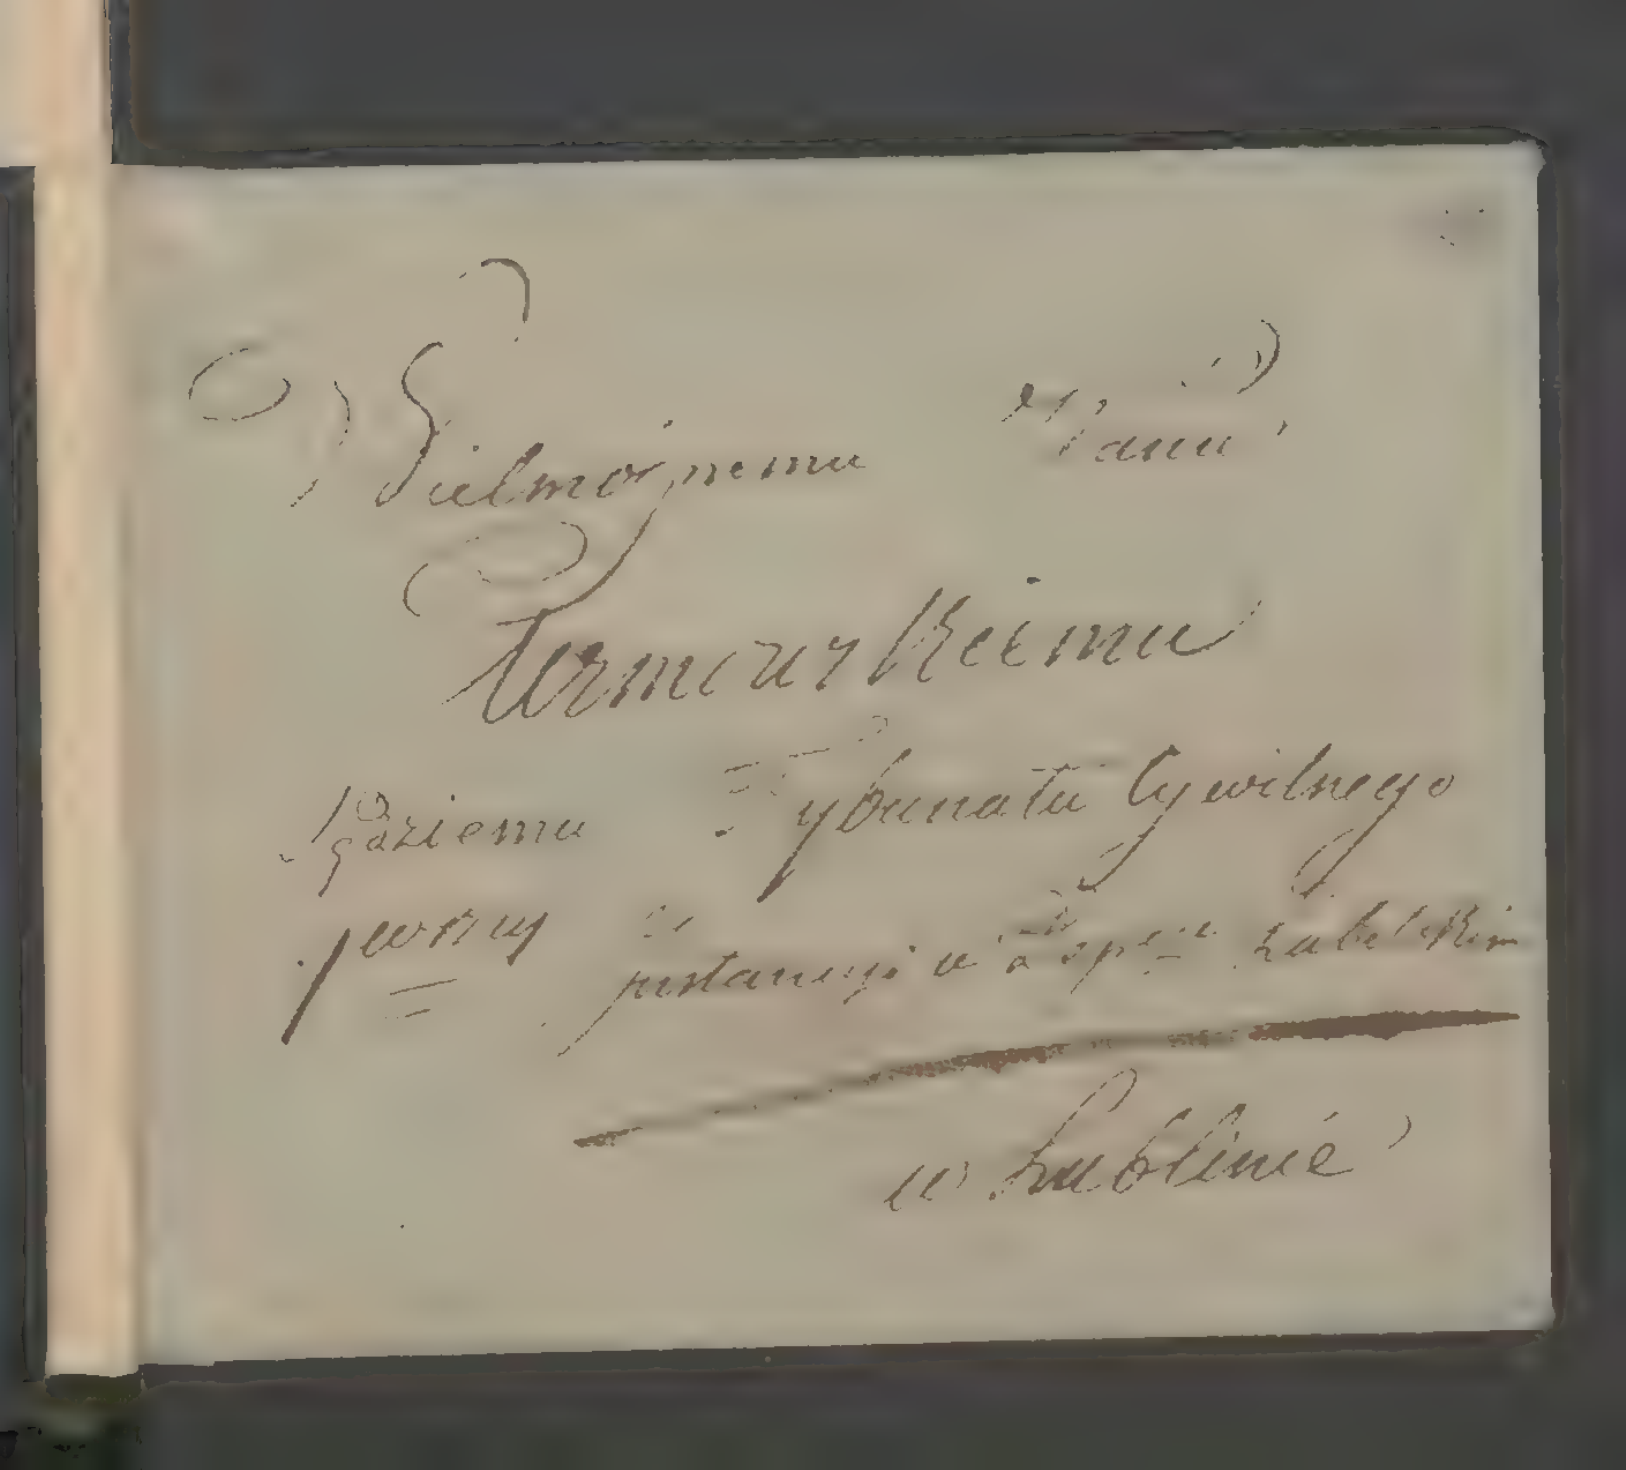 Wielmożnemu Panu
Urmowskiemu
Sędziemu Trybunału Cywilnego
pierwszey Instancyi w Lubelskim
w Lublinie